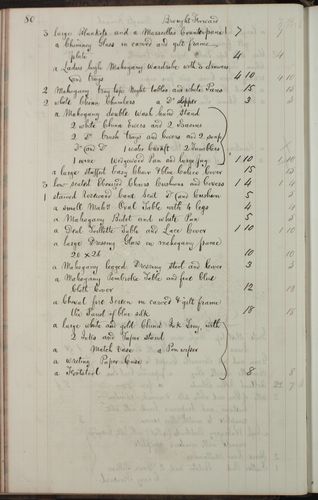 80 Brought Forward
3 large Blankets and a Marseilles Counterpane 7
a Chimney Glass in carved and gilt frame
plate 4
a Ladies high Mahogany Wardrobe with 3 drawers
and trays 4 10
2 Mahogany tray tops Night tables and white Pans 15
2 white China Chambers a Do Slipper 3
a Mahogany double Wash hand Stand
2 white China Ewers and 2 Basins
2 Do Brush trays and Covers and 2 soap
Do and Do 1 water Caraft 2 Tumblers
1 Wedgwood Pan and large jug 1 10
a large stuffed Easy Chair & blue Calico Cover 15
3 low seated Chairs Cushions and Covers 1 4
1 stained Rosewood Seat Do and Cushion 5
a small Mahy Oval Table with 4 legs 4
a Mahogany Bidet and white Pan 5
a Deal Toilette Table and Lace Cover 1 10
a large Dressing Glass in mahogany frame
20 x 26 10
a Mahogany legged Dressing stool and Cover 3
a Mahogany Pembroke Table and fine blue
Cloth Cover 12
a Cheval fire Screen in carved & gilt frame
the Panel of blue silk 18
a large white and gold China Ink Tray with
2 Inks and Taper stand
a Match Case a Pen wiper
a writing Paper Case
a Footstool 8